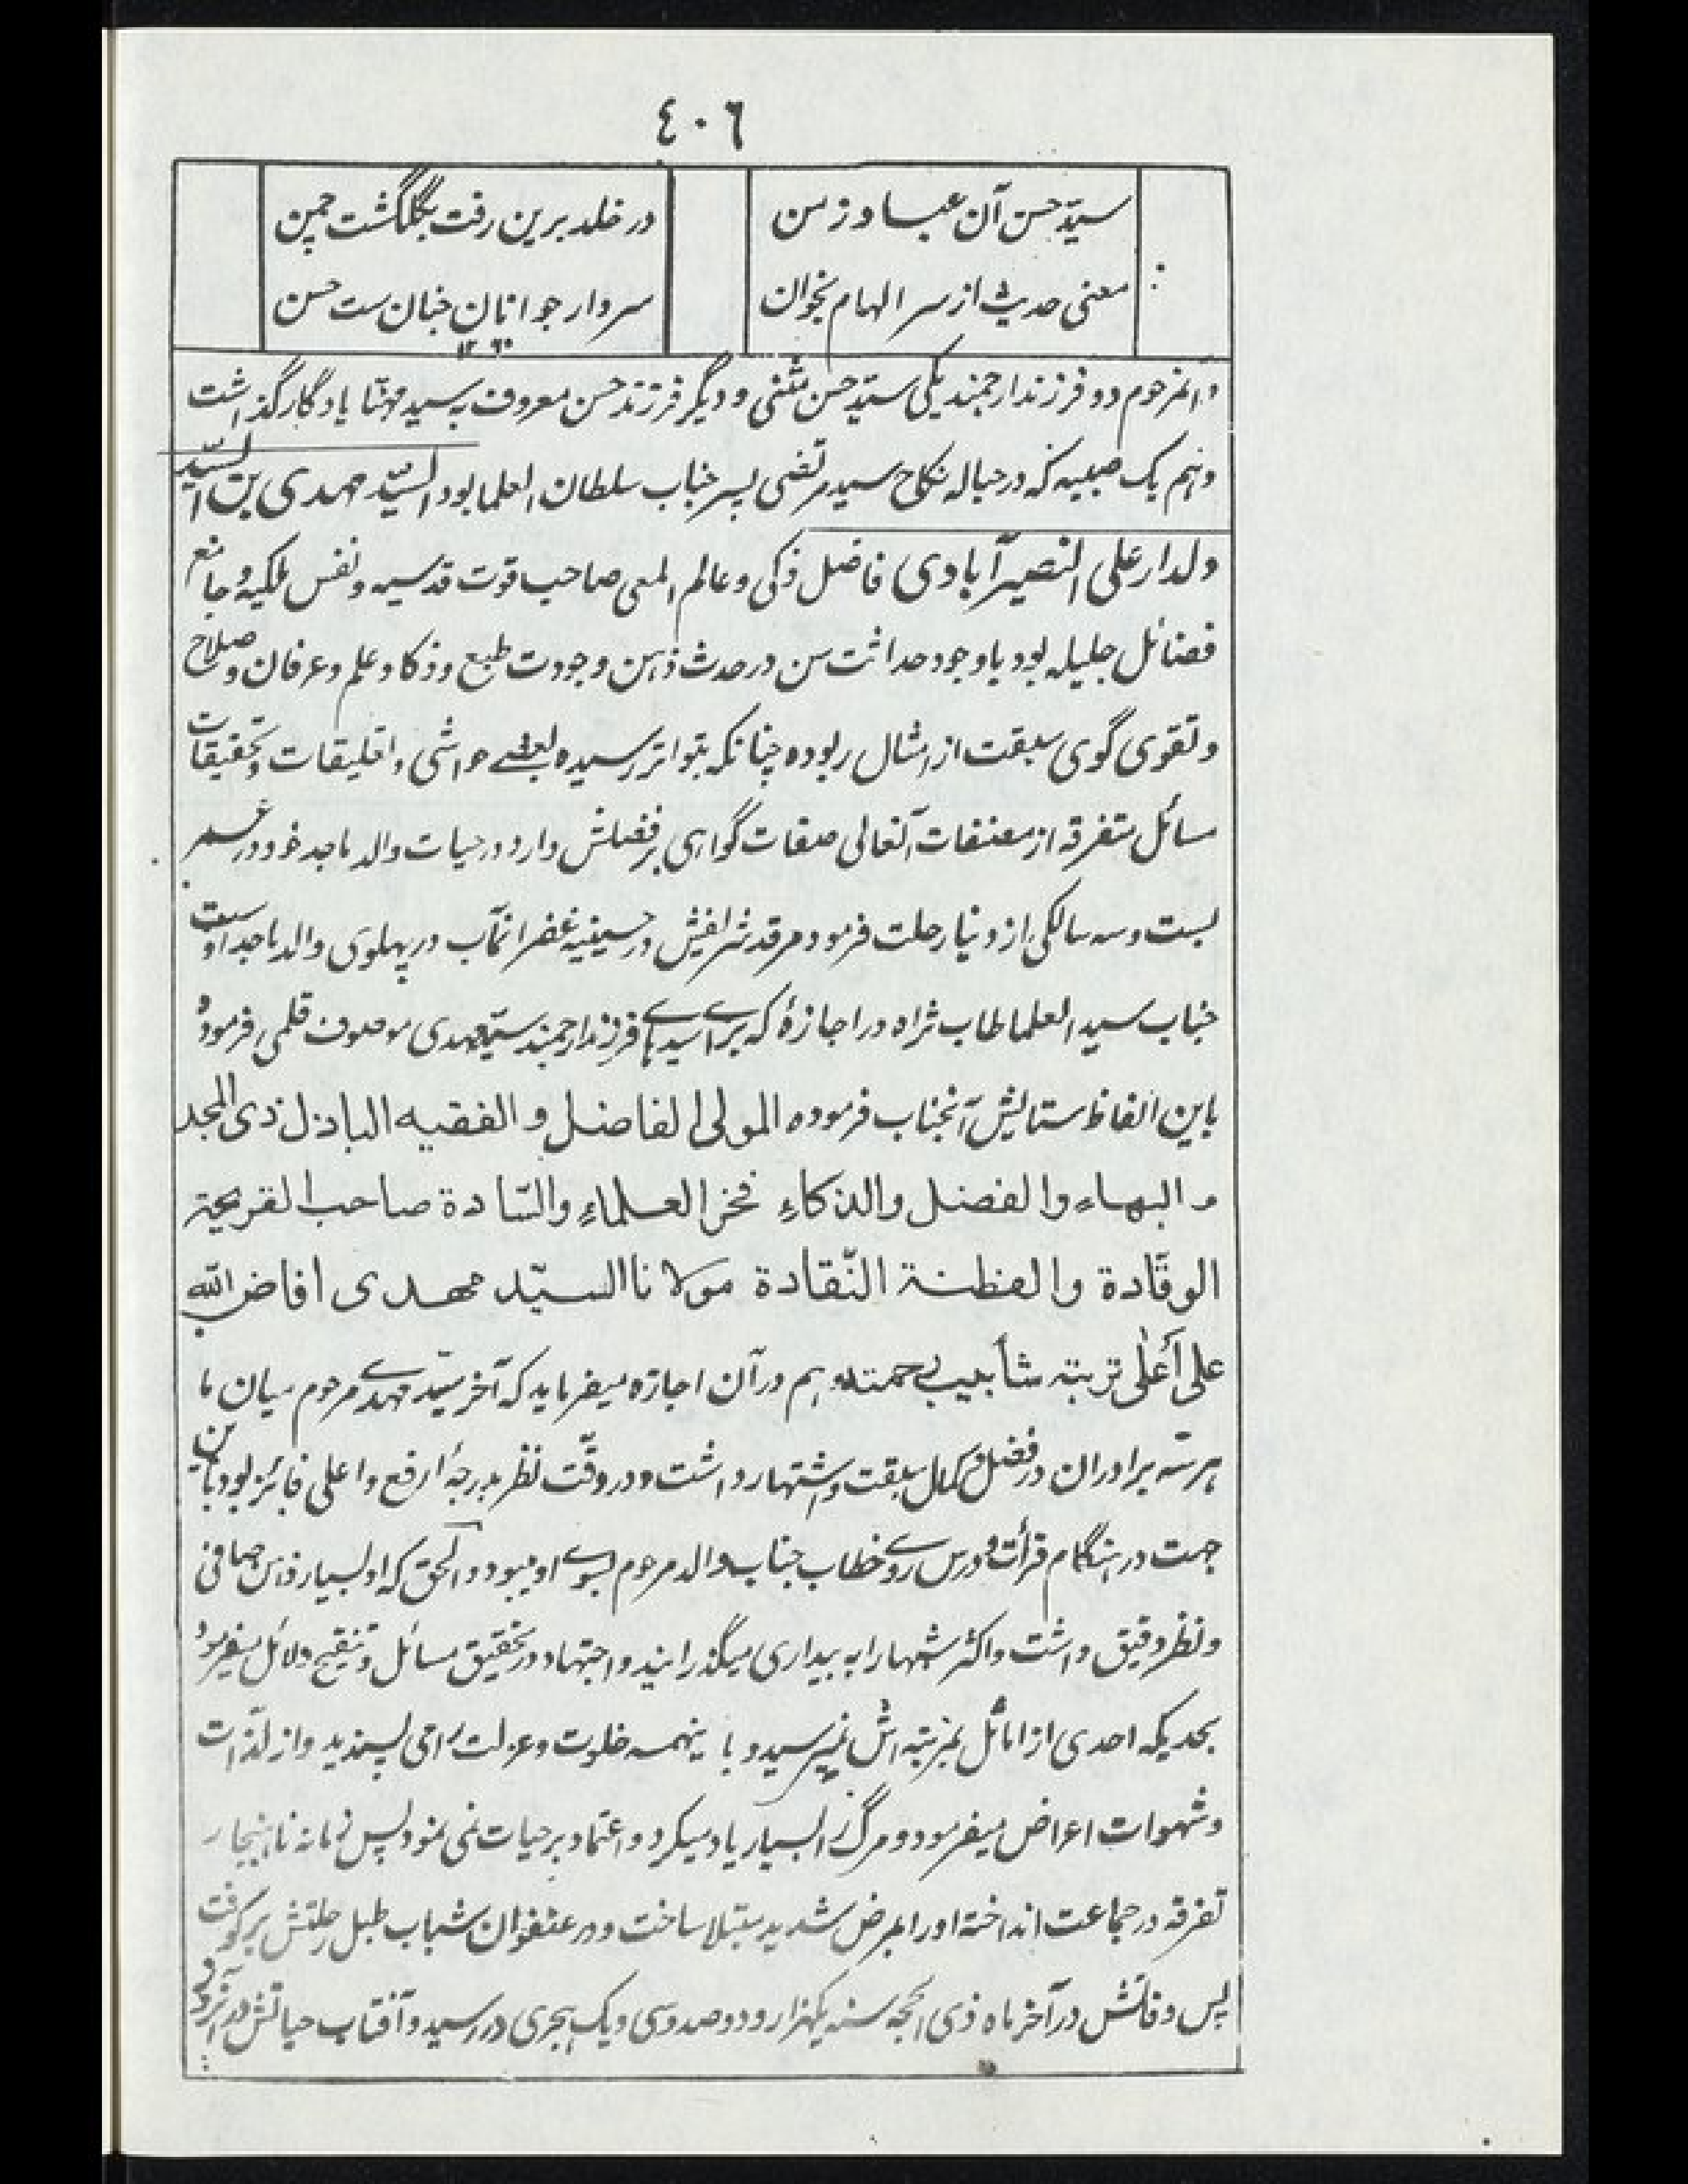 ٤٠٦
سیّد حسن آن عباد زمن
در خلد برین رفت بگلگشت چمن
معنی حدیث از سر الهام بخوان
سردار جوانان جنان ست حسن
۱۲۶۰
و آنمرحوم دو فرزند ارجمند یکی سیّد حسن مثنی و دیگر فرزند حسن معروف به سید مهنّا یادگار گذاشت
و نهم یک صبیه که در حباله نکاح سید مرتضی پسر جناب سلطان العلما بود السیّد مهدی بن السیّد
دلدار علی النصیرآبادی فاضل ذکی و عالم المعی صاحب قوت قدسیه و نفس ملکیه و جامع
فضائل جلیله بود باوجود حداثت سن در حدث ذهن و جودت طبع و ذکا و علم و عرفان و صلاح
و تقوی گوی سبقت از امثال ربوده چنانکه بتواتر رسیده بعضے حواشی و تعلیقات و تحقیقات
مسائل متفرقه از مصنفات آنعالی صفات گواهی بر فضلش دارد در حیات والد ماجد خود در عمر
بست و سه سالگی از دنیا رحلت فرمود مرقد شریفش در حسینیه غفرانمآب در پهلوی والد ماجد اوست
جناب سید العلما طاب ثراه در اجازهٔ که برای سید هادی فرزند ارجمند سیّد مهدی موصوف قلمی فرموده
باین الفاظ ستایش آنجناب فرموده المولی الفاضل و الفقیه الباذل ذی المجد
و البهاء والفضل والذکاء فخر العلماء والسّادة صاحب القریحة
الوقّادة والفطنة النّقادة مولانا السیّد مهدی افاض الله
علی أعلی تربته شآبیب رحمته و هم در آن اجازه میفرماید که آخر سیّد مهدی مرحوم میان ما
هر سه برادران در فضل و کمال سبقت و اشتهار داشت و در وقّت نظر بدرجهٔ ارفع و اعلی فائز بود باین
جهت در هنگام قرأت و درس روے خطاب جناب والد مرحوم بسوے او میبود و الحق که او بسیار ذهن صافی
و نظر دقیق داشت و اکثر شبها را به بیداری میگذرانید و اجتهاد در تحقیق مسائل و تنقیح دلائل میفرمود
بحدیکه احدی از اماثل بمرتبه اش نمیرسید و با ینهمه خلوت و عزلت را می پسندید و از لذّات
و شهوات اعراض میفرمود و مرگ را بسیار یاد میکرد و اعتماد بر حیات نمی نمود پس زمانه ناهنجار
تفرقه در جماعت انداخته او را بمرض شدید مبتلا ساخت و در عنفوان شباب طبل رحلتش برکوفت
پس وفاتش در آخر ماه ذی الحجه سنه یکهزار و دو صد و سی و یک هجری در رسید و آفتاب حیاتش در